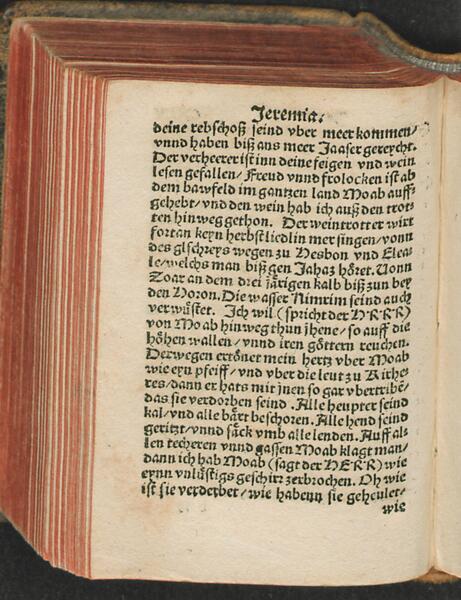 Jeremia.
deine rebschoß seind vber meer kommen/
vnnd haben biß ans meer Jaaser gereycht.
Der verheerer ist inn deine feigen vnd wein
lesen gefallen/ Freud vnnd frolocken ist ab
dem bawfeld im gantzen land Moab auff-
gehebt/ vnd den wein hab ich auß den trot-
ten hinweg gethon. Der weintrotter wirt
fortan keyn herbstliedlin mer singen/ vonn
des gschreys wegen zu Hesbon vnd Elea-
le/ welchs man biß gen Jahaz höret. Vonn
Zoar an dem drei järigen kalb biß zun bey
den Horon. Die wasser Nimrim seind auch
verwüstet. Ich wil (spricht der HERR)
von Moab hinweg thun jhene/ so auff die
höhen wallen/ vnnd iren göttern reuchen.
Derwegen ertönet mein hertz vber Moab
wie eyn pfeiff/ vnd vber die leut zu Kirhe-
res/ dann er hats mit jnen so gar vbertribē/
das sie verdorben seind. Alle heupter seind
kal/ vnd alle bärt beschoren. Alle hend seind
geritzt/ vnnd säck vmb alle lenden. Auff al-
len techeren vnnd gassen Moab klagt man/
dann ich hab Moab (sagt der HERR) wie
eynn vnlüstigs geschirr zerbrochen. Oh wie
ist sie verderbet/ wie habenn sie geheulet/
wie